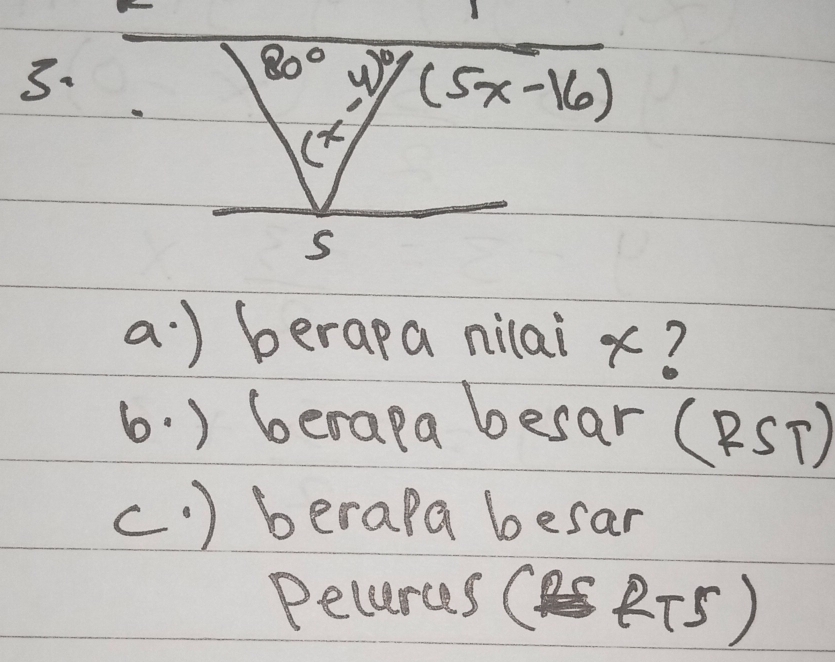 3.
80° (x-4)° (5x-16)
S
a.) berapa nilai x?
b.) berapa besar (RST)
c.) berapa besar
Pelurus (RTS)